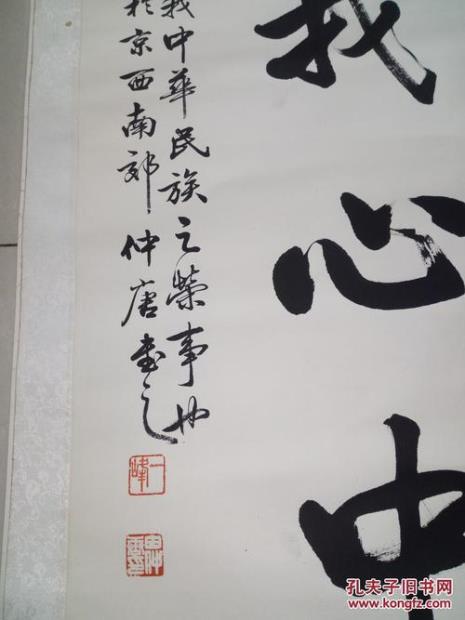 我心中
我中华民族之榮事也
於京西南郊仲唐書之
一峰
孔夫子旧书网
www.kongfz.com